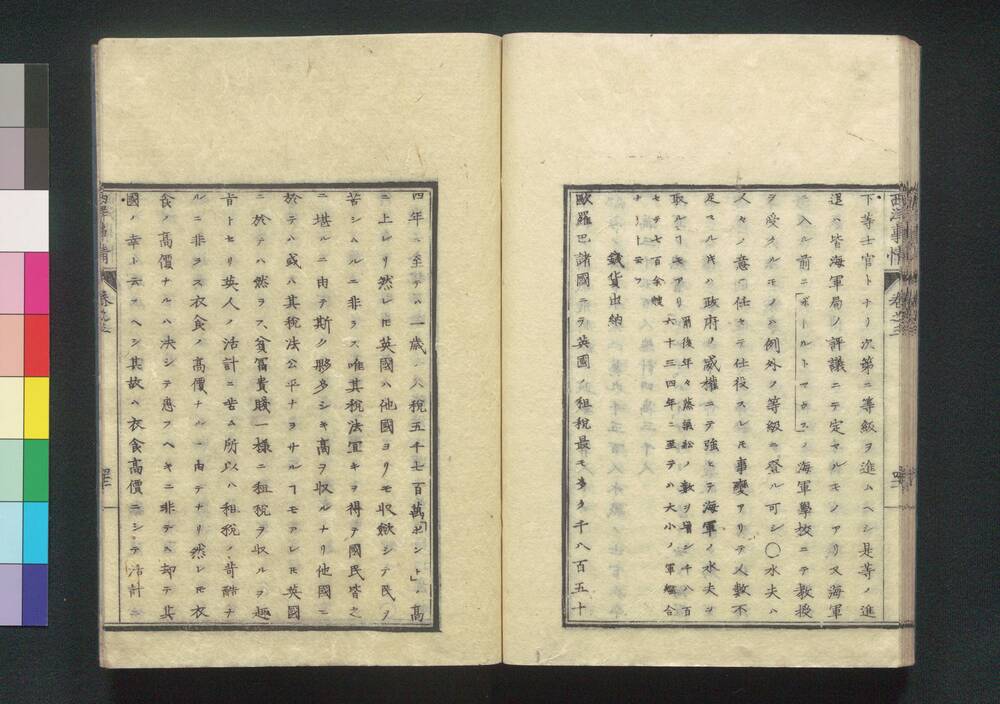 西洋事情 卷之三
下等士官トナリ次第ニ等級ヲ進ムヘシ是等ノ進
退ハ皆海軍局ノ評議ニテ定マルモノアリ又海軍
ニ入ル前ニポールトマウスノ海軍學校ニテ教授
ヲ受クルモノハ例外ノ等級ニ登ル可シ〇水夫ハ
人々ノ意ニ任セテ仕役スレモ事變アリテ人數不
足スルキハ政府ノ威權ニテ強ヒテ海軍ノ水夫ヲ
取ルヿアリ爾後年々蒸氣船ノ數ヲ増シ千八百
六十三四年ニ至テハ大小ノ軍艦合
セテ七百余艘
ナリト云フ
錢貨出納
歐羅巴諸國ニテ英國ノ租税最モ多ク千八百五十
四年ニ至テハ一歳ノ入税五千七百萬「ポンド」ノ高
ニ上レリ然レ𪜈英國ハ他國ヨリモ收斂シテ民ヲ
苦シムルニ非ラス唯其税法宜キヲ得テ國民皆之
ニ堪ルニ由テ斯ク夥多シキ高ヲ收ルナリ他國ニ
於テハ或ハ其税法公平ナヲサルヿモアレ𪜈英國
ニ於テハ然ヲス貧冨貴賤一様ニ租税ヲ收ルヲ趣
旨トセリ英人ノ活計ニ苦ム所以ハ租税ノ苛酷ナ
ルニ非ラス衣食ノ高價ナルニ由テナリ然レ𪜈衣
食ノ高價ナルハ決シテ患フヘキニ非テス却テ其
國ノ幸ト云フヘシ其故ハ衣食高價ニシテ活計ニ
西洋事情 卷之三